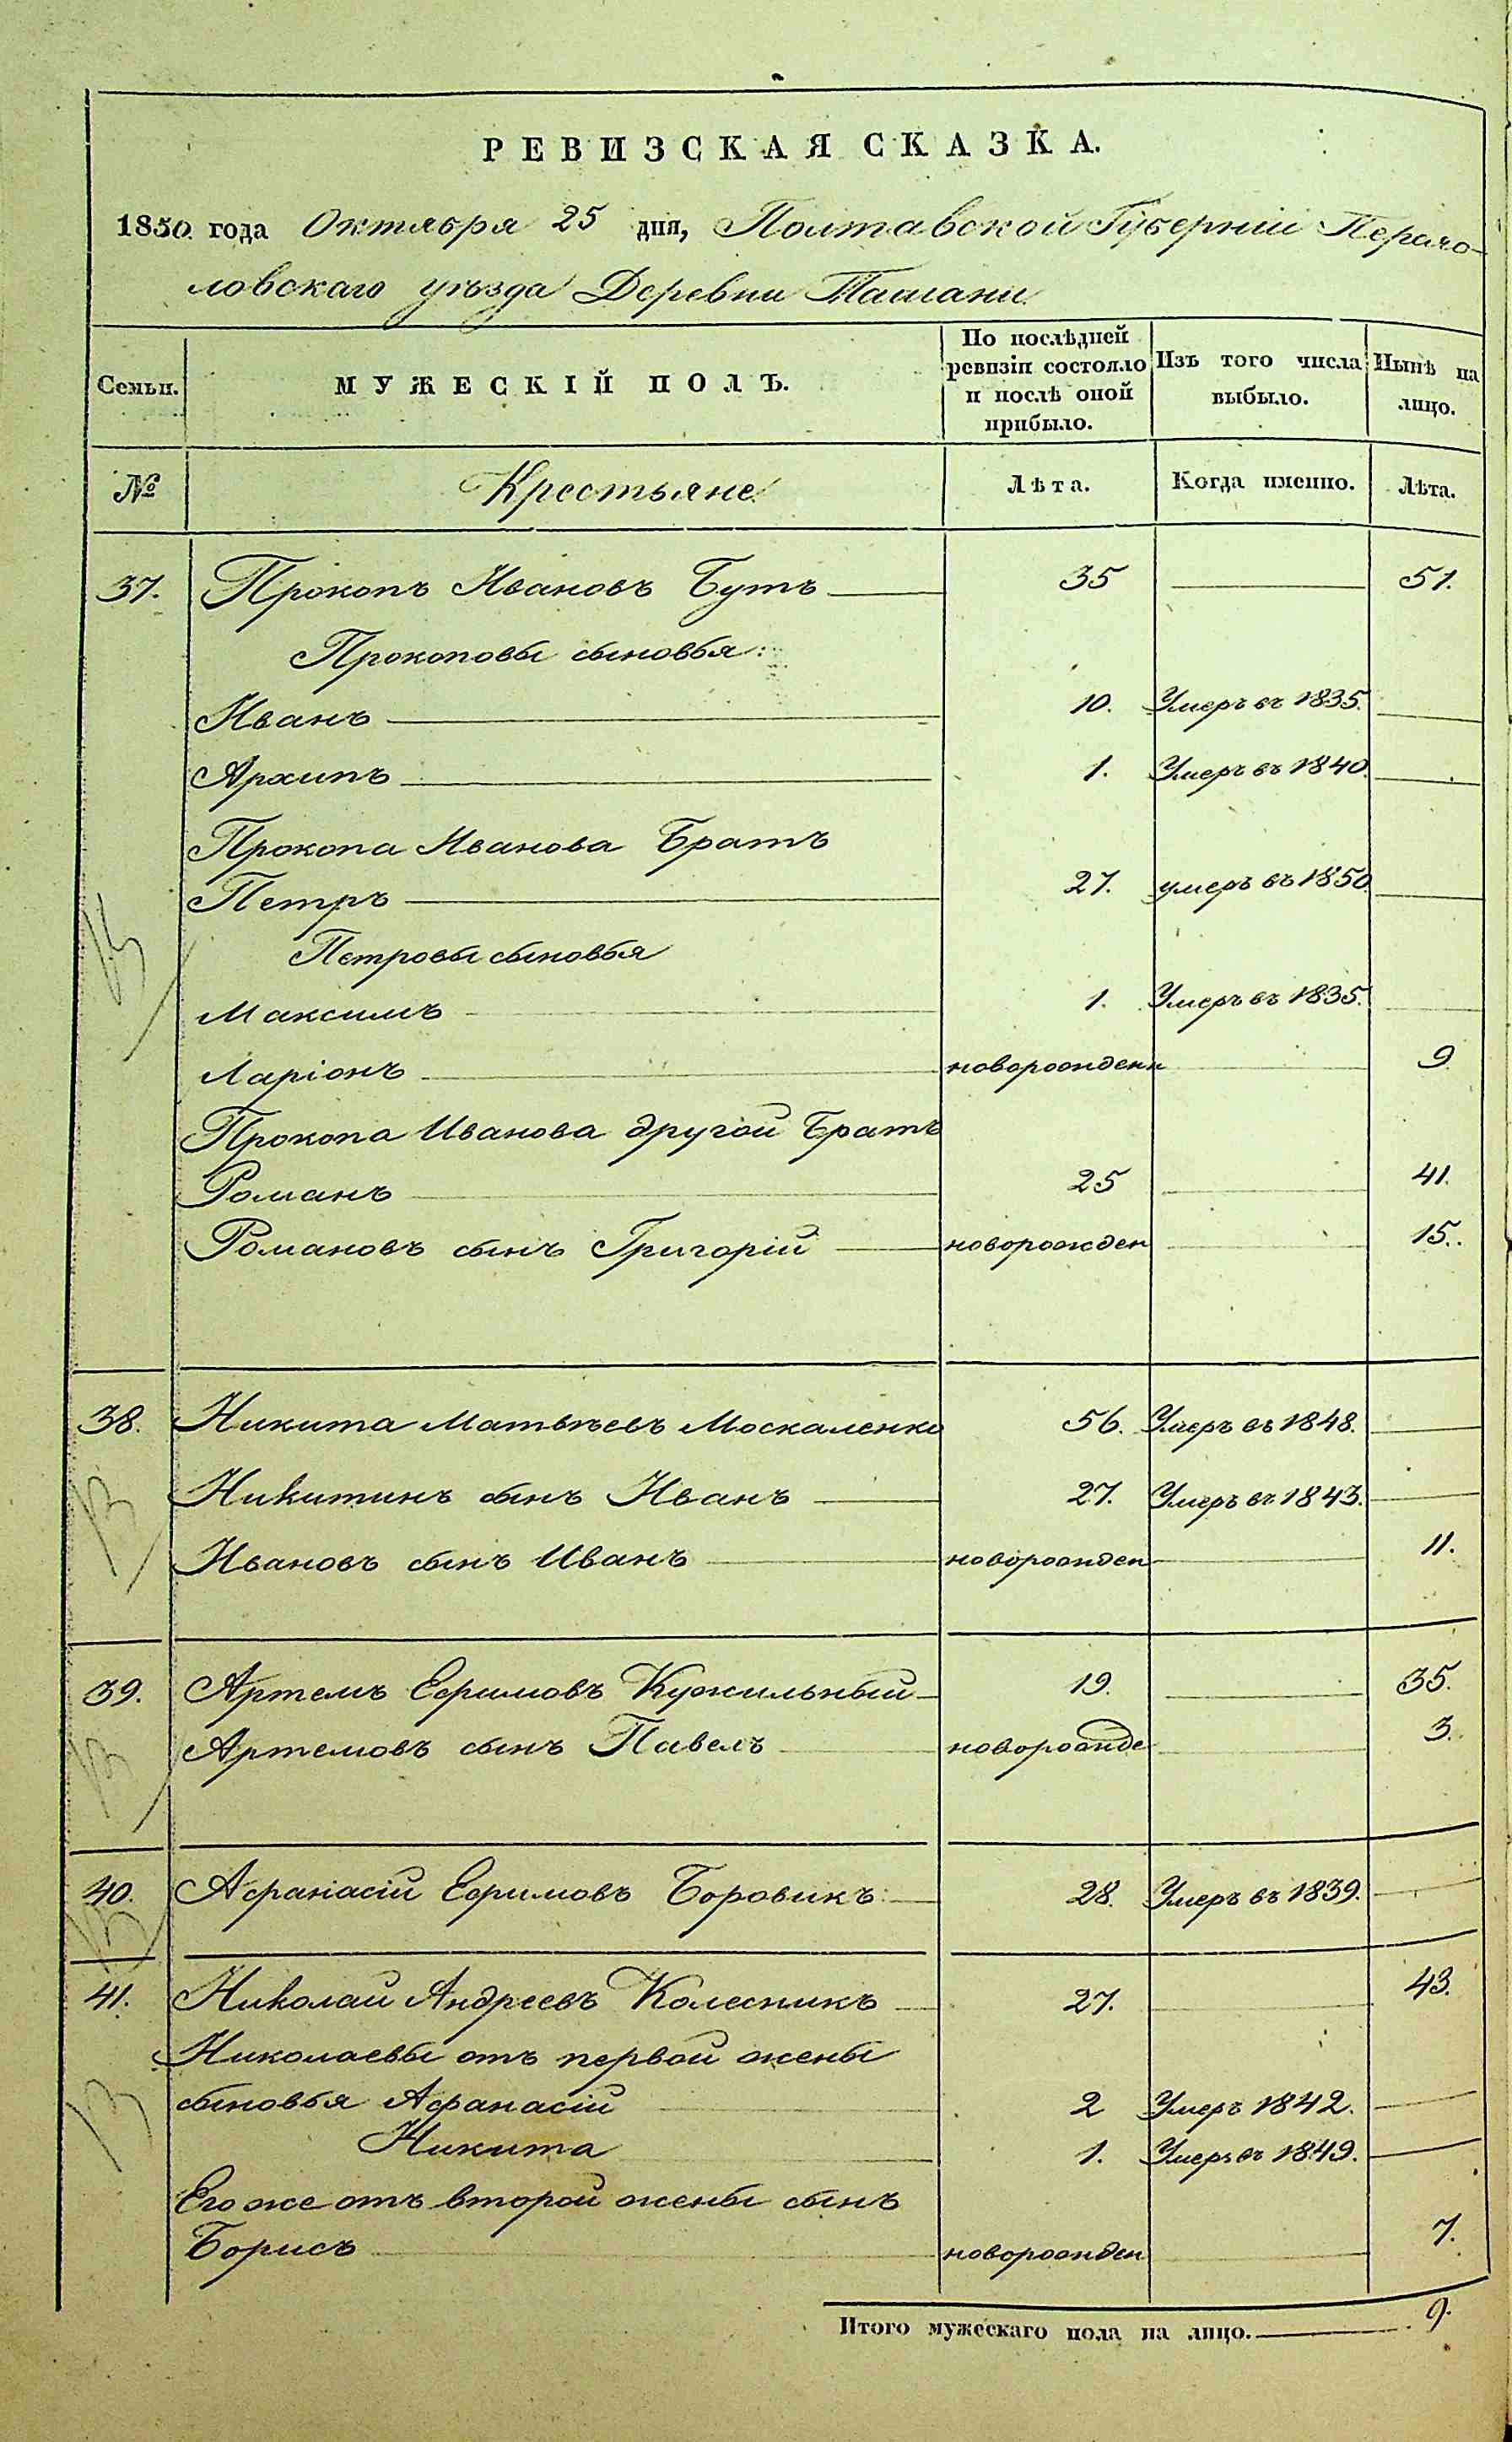 РЕВИЗСКАЯ СКАЗКА.
1850 года Октября 25 дня, Полтавской Губерніи
ловскаго уѣзда Деревни Ташани
Семьи.
МУЖЕСКІЙ ПОЛЪ.
По послѣдней ревизіи состояло и послѣ оной прибыло.
Изъ того числа выбыло.
Нынѣ на лицо.
№ Крестьяне Лѣта. Когда именно. Лѣта.
37. Прокопъ Ивановъ Бутъ 35 51.
Прокоповы сыновья:
Иванъ 10. Умеръ въ 1835.
Архипъ 1. Умеръ въ 1840.
Прокопа Иванова Братъ
Петръ 27. умеръ въ 1850
Петровы сыновья
Максимъ 1. Умеръ въ 1835.
Ларіонъ новорожденн 9
Прокопа Иванова другой Братъ
Романъ 25 41.
Романовъ сынъ Григорій новорожден 15.
38. Никита Матвѣевъ Москаленко 56. Умеръ въ 1848.
Никитинъ сынъ Иванъ 27. Умеръ въ 1843.
Ивановъ сынъ Иванъ новорожден 11.
39. Артемъ Ефимовъ Кужильный 19. 35.
Артемовъ сынъ Павелъ новорожде 3.
40. Афанасій Ефимовъ Боровикъ 28. Умеръ въ 1839.
41. Николай Андреевъ Колесникъ 27. 43.
Николаевы отъ первой жены
сыновья Афанасій 2 Умеръ 1842.
Никита 1. Умеръ въ 1849.
Его же отъ второй жены сынъ
Борисъ новорожден 7.
Итого мужескаго пола на лицо. 9.